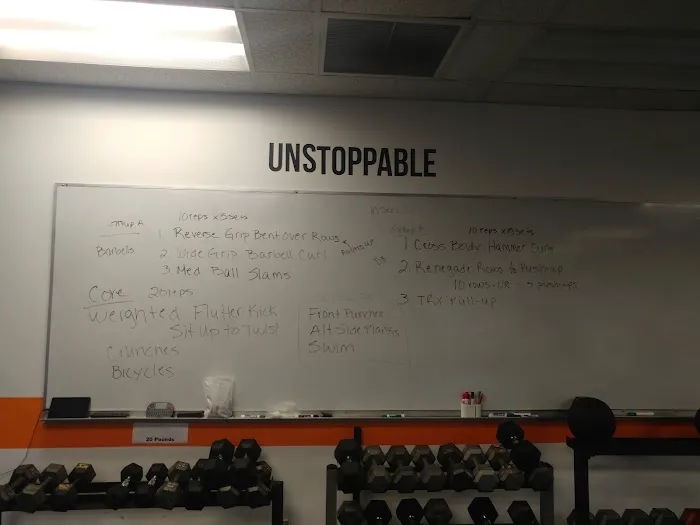 UNSTOPPABLE
Group A 10 reps x 3 sets
Barbells
1 Reverse Grip Bent over Rows
2 Wide Grip Barbell Curl
3 Med Ball Slams
palms up
Core 20 reps
Weighted Flutter Kick
Sit up to Twist
Crunches
Bicycles
Front Punches
Alt Side Planks
Swim
10 reps x 3 sets
1 Cross Body Hammer Curls
2. Renegade Rows to Pushup
10 rows
3 TRX Pull-up
20 Pounds